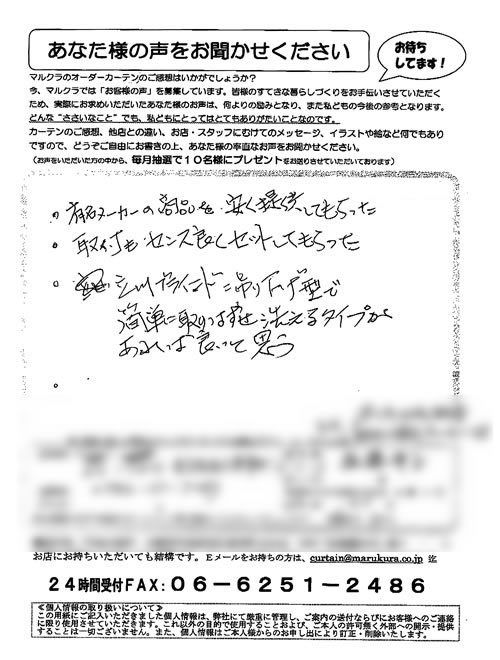 あなた様の声をお聞かせください
お待ち
してます！
マルクラのオーダーカーテンのご感想はいかがでしょうか？
今、マルクラでは「お客様の声」を募集しています。皆様のすてきな暮らしづくりをお手伝いさせていただく
ため、実際にお求めいただいたあなた様のお声は、何よりの励みとなり、また私どもの今後の参考となります。
どんな“ささいなこと”でも、私どもにとってはとてもありがたいことなのです。
カーテンのご感想、他店との違い、お店・スタッフにむけてのメッセージ、イラストや絵など何でもあり
ですので、どうぞご自由にお書きの上、あなた様の率直なお声をお聞かせください。
（お声をいただいた方の中から、毎月抽選で１０名様にプレゼントをお送りさせていただいております）
。有名メーカーの商品を安く提供してもらった
・取付もセンス良くセットしてもらった
・シルバーブラインド
吊り下げ型で
簡単に取りはずせ洗えるタイプが
あれば良いと思う
お店にお持ちいただいても結構です。Ｅメールをお持ちの方は、curtain@marukura.co.jp 迄
２４時間受付FAX：０６－６２５１－２４８６
≪個人情報の取り扱いについて≫
この用紙にご記入いただきました個人情報は、弊社にて厳重に管理し、ご案内の送付ならびにお客様へのご連絡
に限り使用させていただきます。これ以外の目的で使用することおよび、ご本人の許可無く外部への開示・提供
することは一切ございません。また、個人情報はご本人様からのお申し出により訂正・削除いたします。